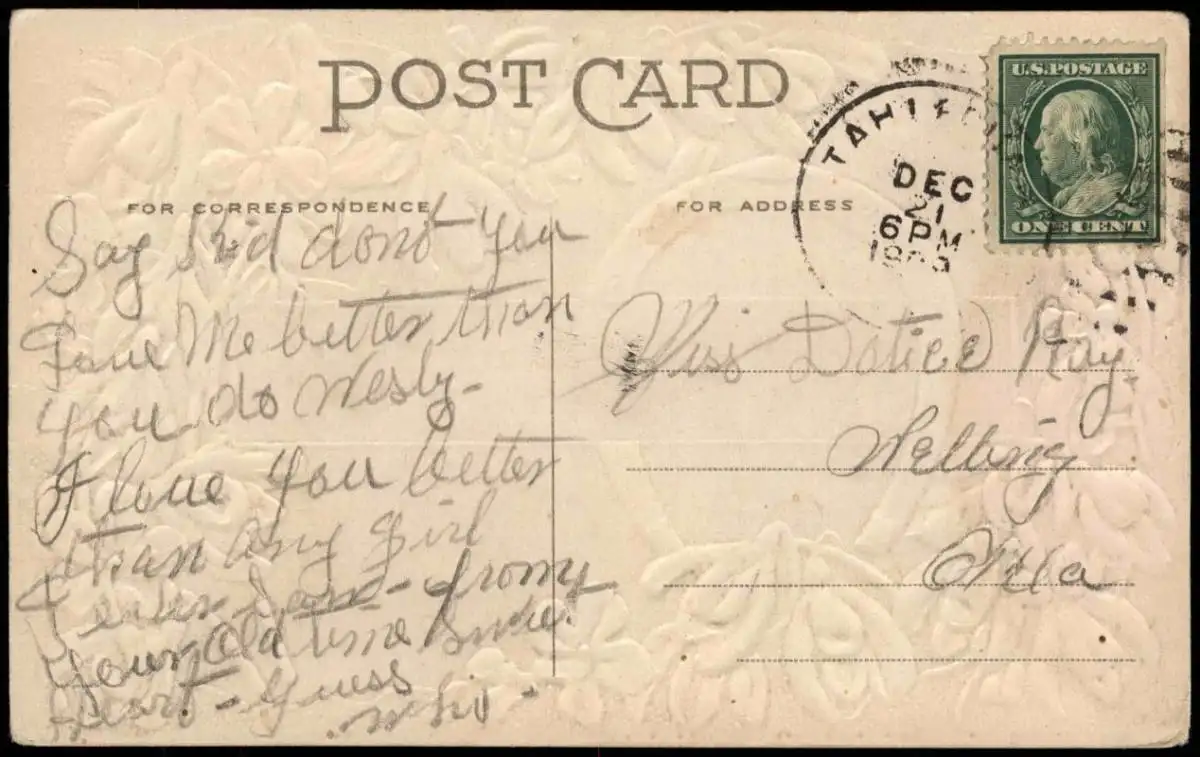 POST CARD
FOR CORRESPONDENCE
FOR ADDRESS
U.S. POSTAGE
ONE CENT
DEC
21
6 PM
1909
Say did dont You
Love Me better than
you do Wesly-
I love You better
than any girl
I ever Saw- from
Your Old time Sweet
heart - Guess
who -
Miss Dotice Ray.
Welling
Okla